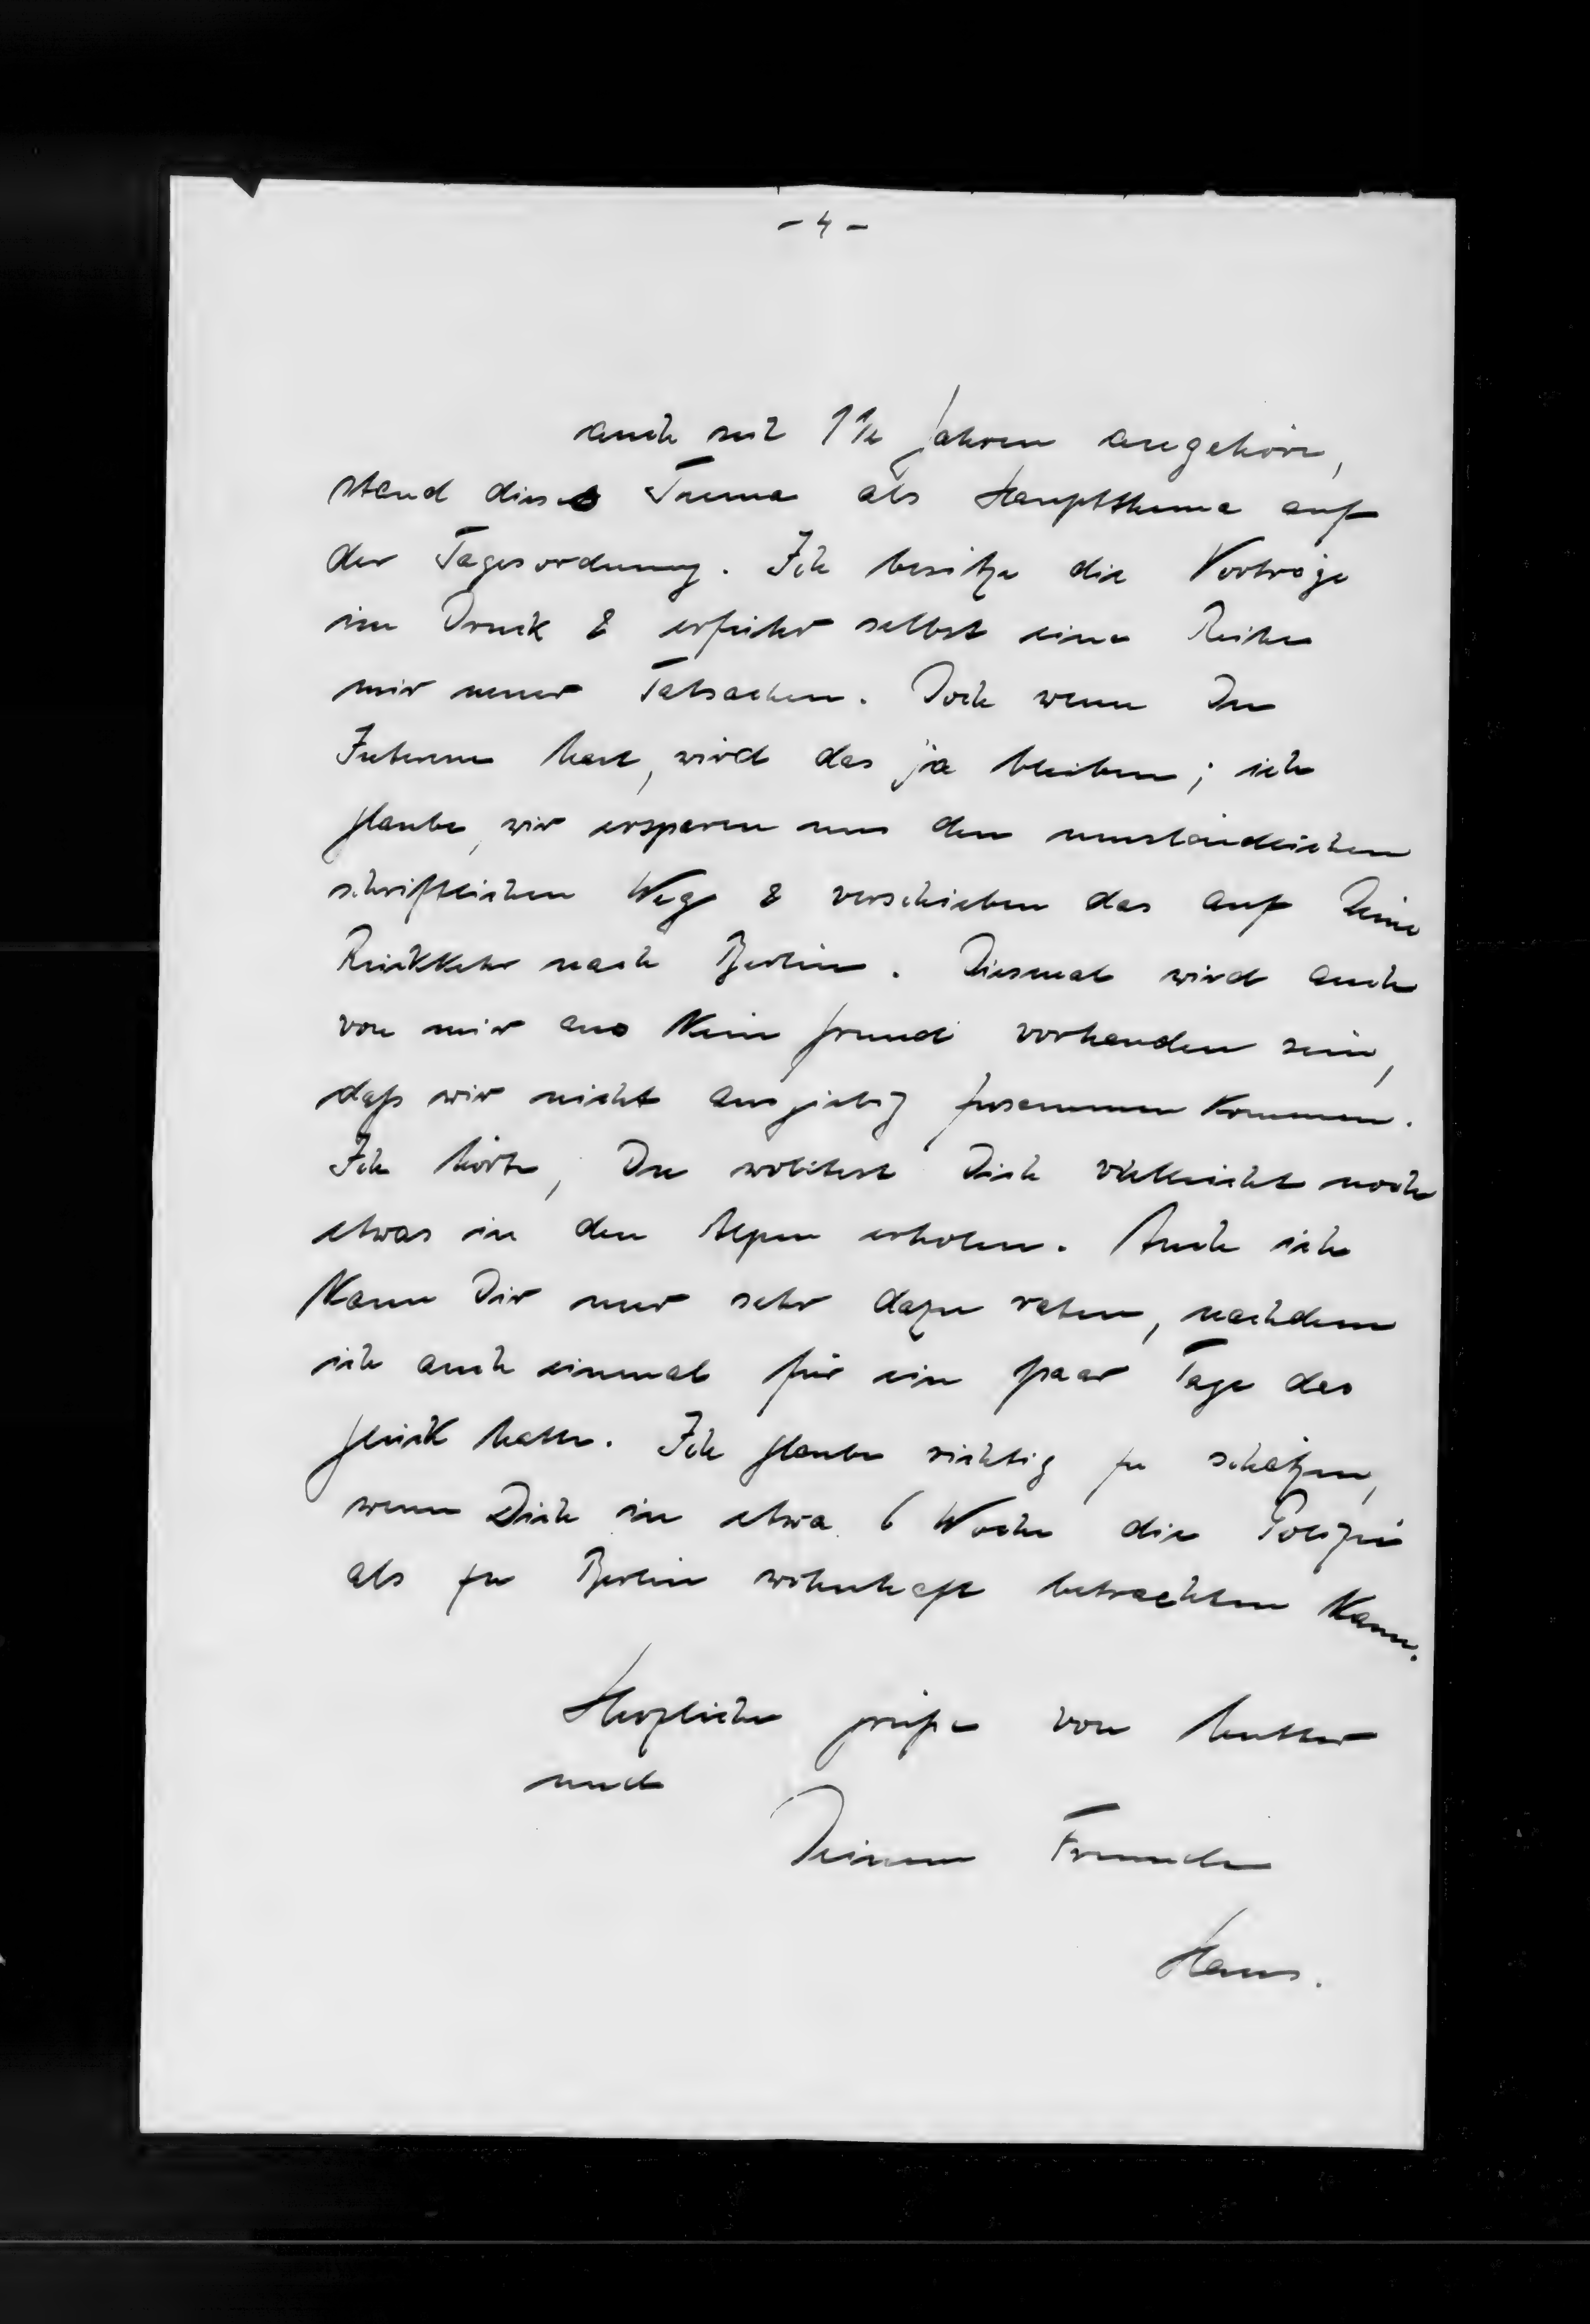 - 4 -
auch seit 1½ Jahren angehöre,
stand dieses Thema als Hauptthema auf
der Tagesordnung. Ich besitze die Vorträge
im Druck & erfuhr selbst eine Reihe
mir neuer Tatsachen. Doch wenn Du
Interesse hast, wird das ja bleiben; ich
glaube, wir ersparen uns den umständlichen
schriftlichen Weg & verschieben das auf Deine
Rückkehr nach Berlin. Diesmal wird auch
von mir aus kein Grund vorhanden sein,
daß wir nicht ausgiebig zusammen kommen.
Ich hörte, Du wolltest Dich vielleicht noch
etwas in den Alpen erholen. Auch ich
kann Dir nur sehr dazu raten, nachdem
ich auch einmal für ein paar Tage das
Glück hatte. Ich glaube richtig zu schätzen,
wenn Dich in etwa 6 Woche die Polizei
als zu Berlin wohnhaft betrachten kann.
Herzliche Grüße von Mutter
und
Deinem Freunde
Hans.